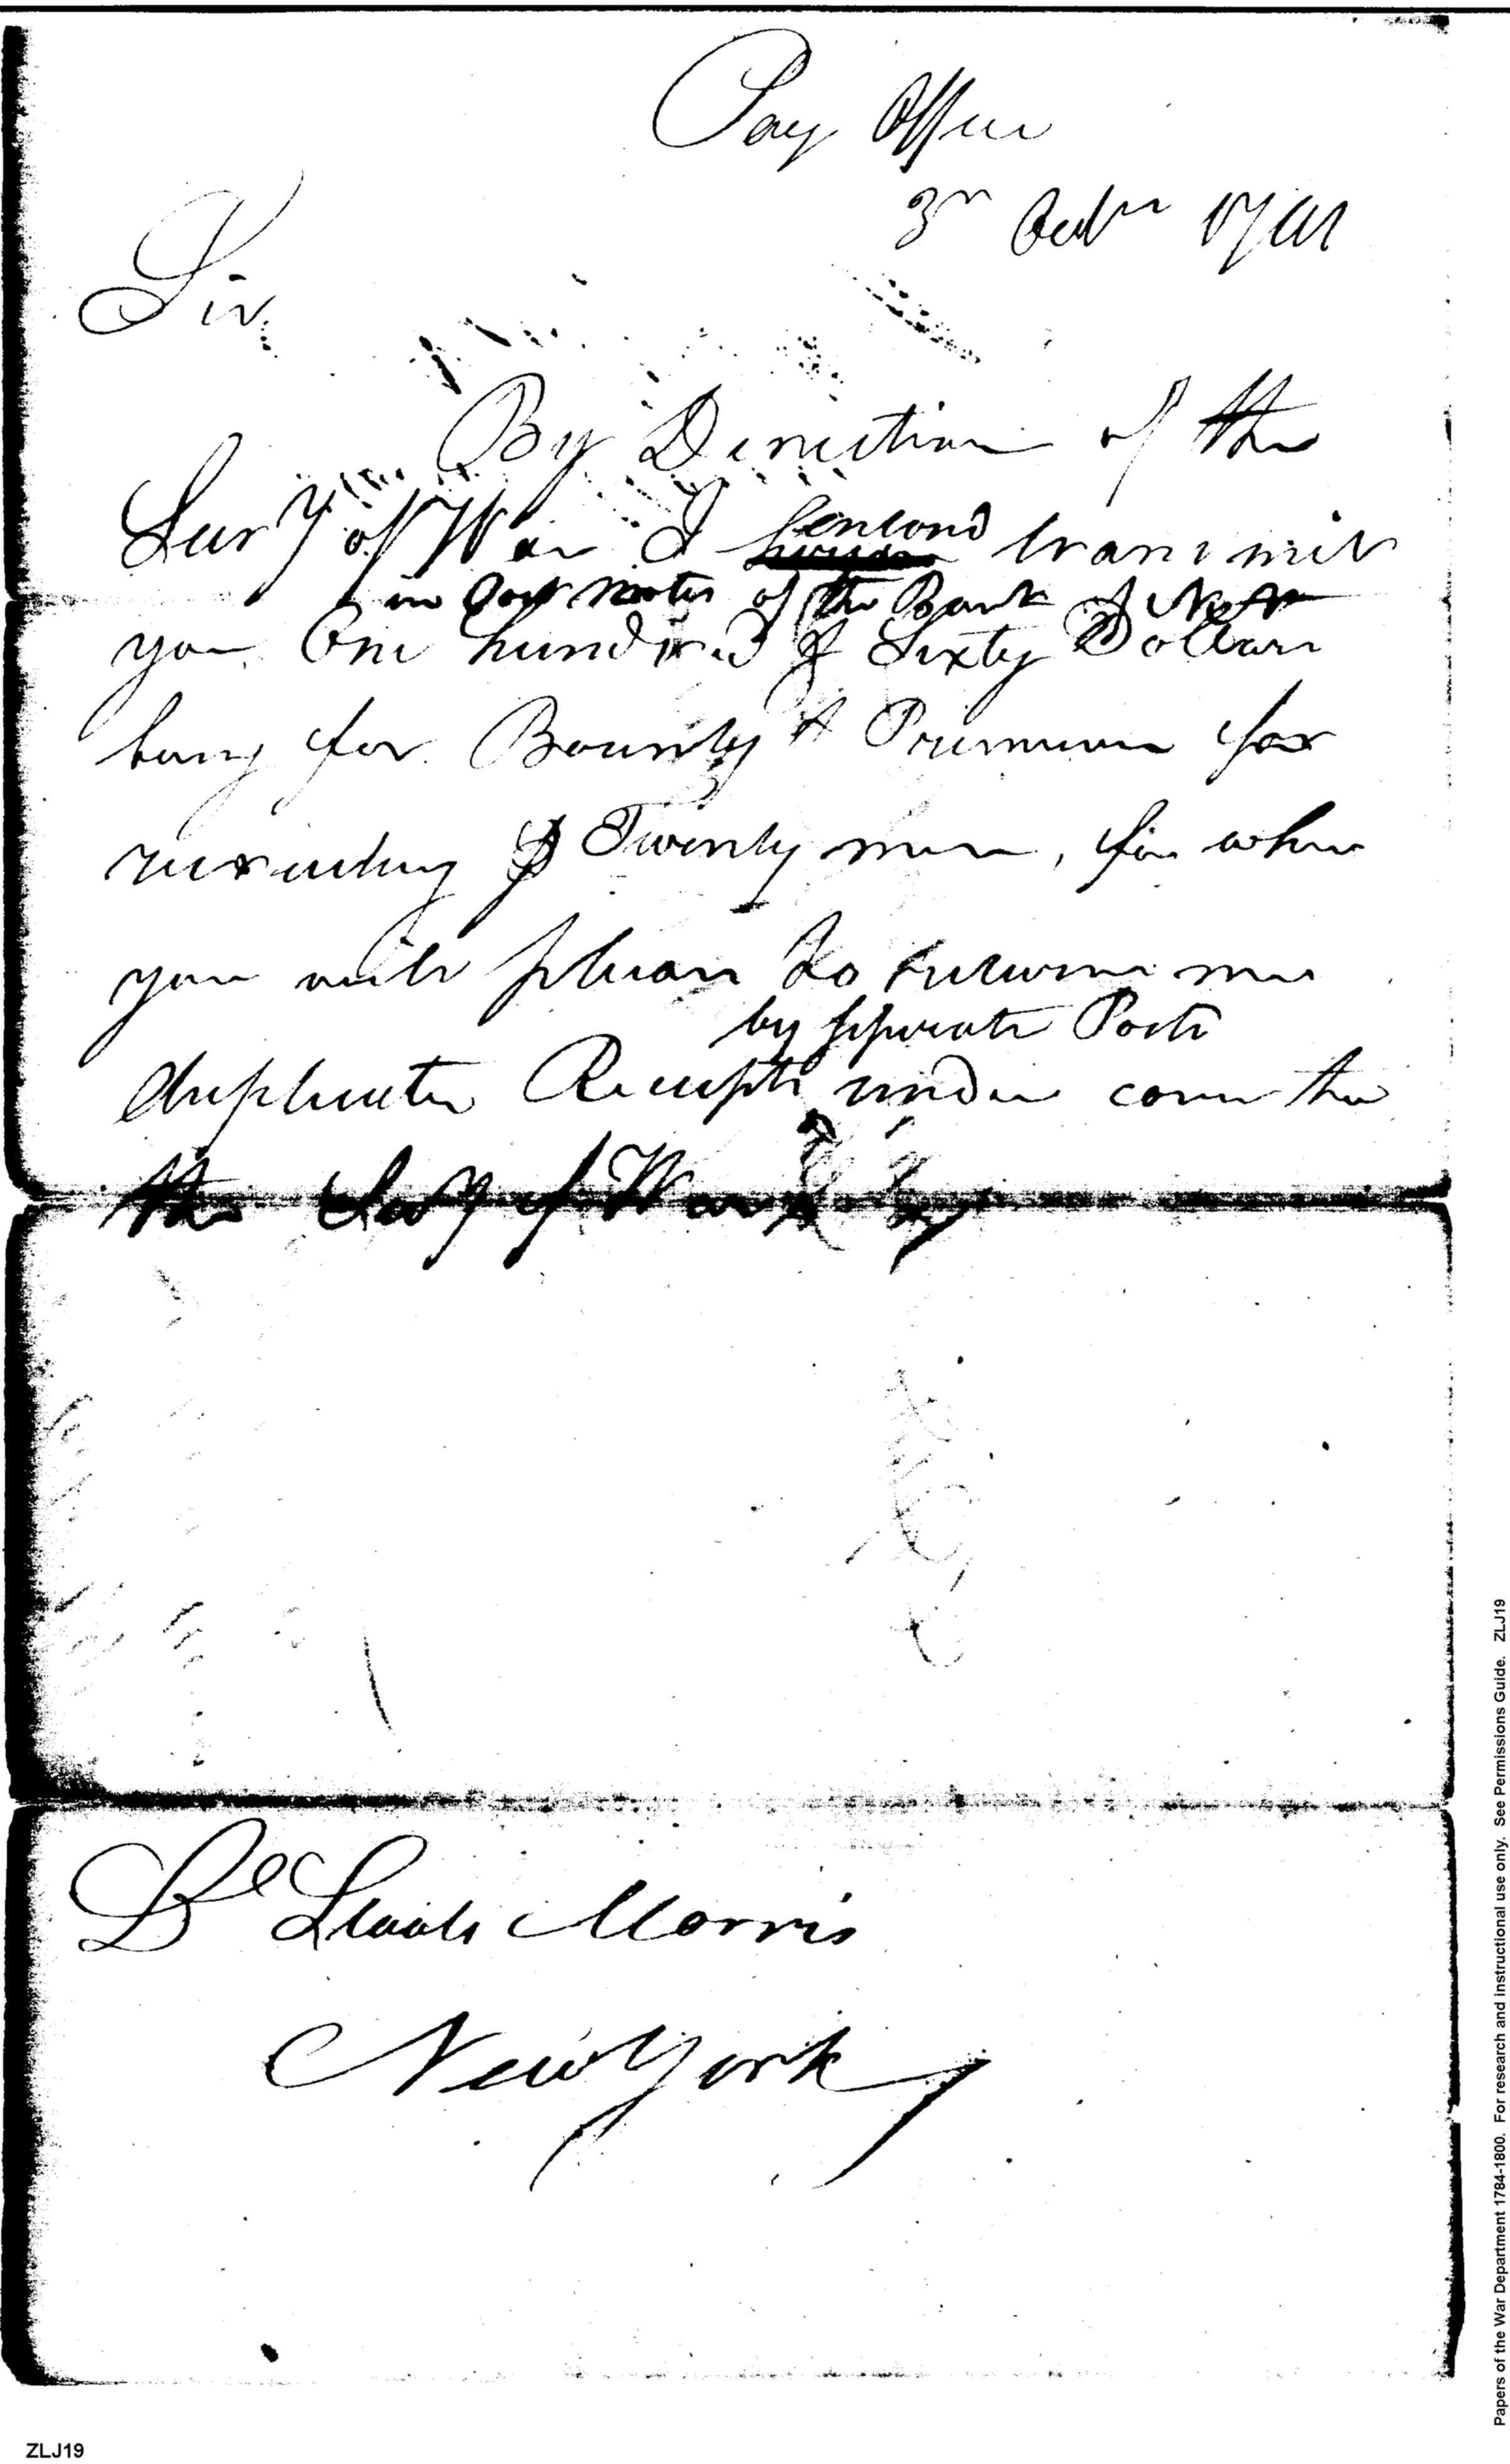 Pay Office
3rd Octr 1791
Sir
By Direction of the
Secry of War I inclosed transmit
in Post notes of the Bank of N. A
you One hundred & Sixty Dollars
being for Bounty & Premium for
recruiting Twenty men, for whom
you will please to return me
by seperate Posts
duplicate Receipts under cover tho
the Secy of War
Lt Staats Morris
New York
Papers of the War Department 1784-1800. For research and instructional use only. See Permissions Guide. ZLJ19
ZLJ19